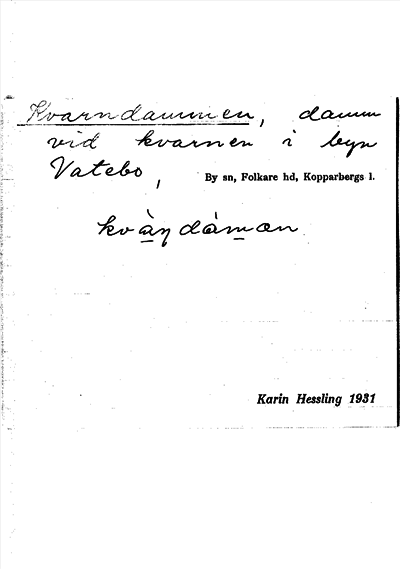 Kvarndammen, damm
vid kvarnen i byn
Vatebo,
By sn, Folkare hd, Kopparbergs l.
kvàṇdàmən
Karin Hessling 1931